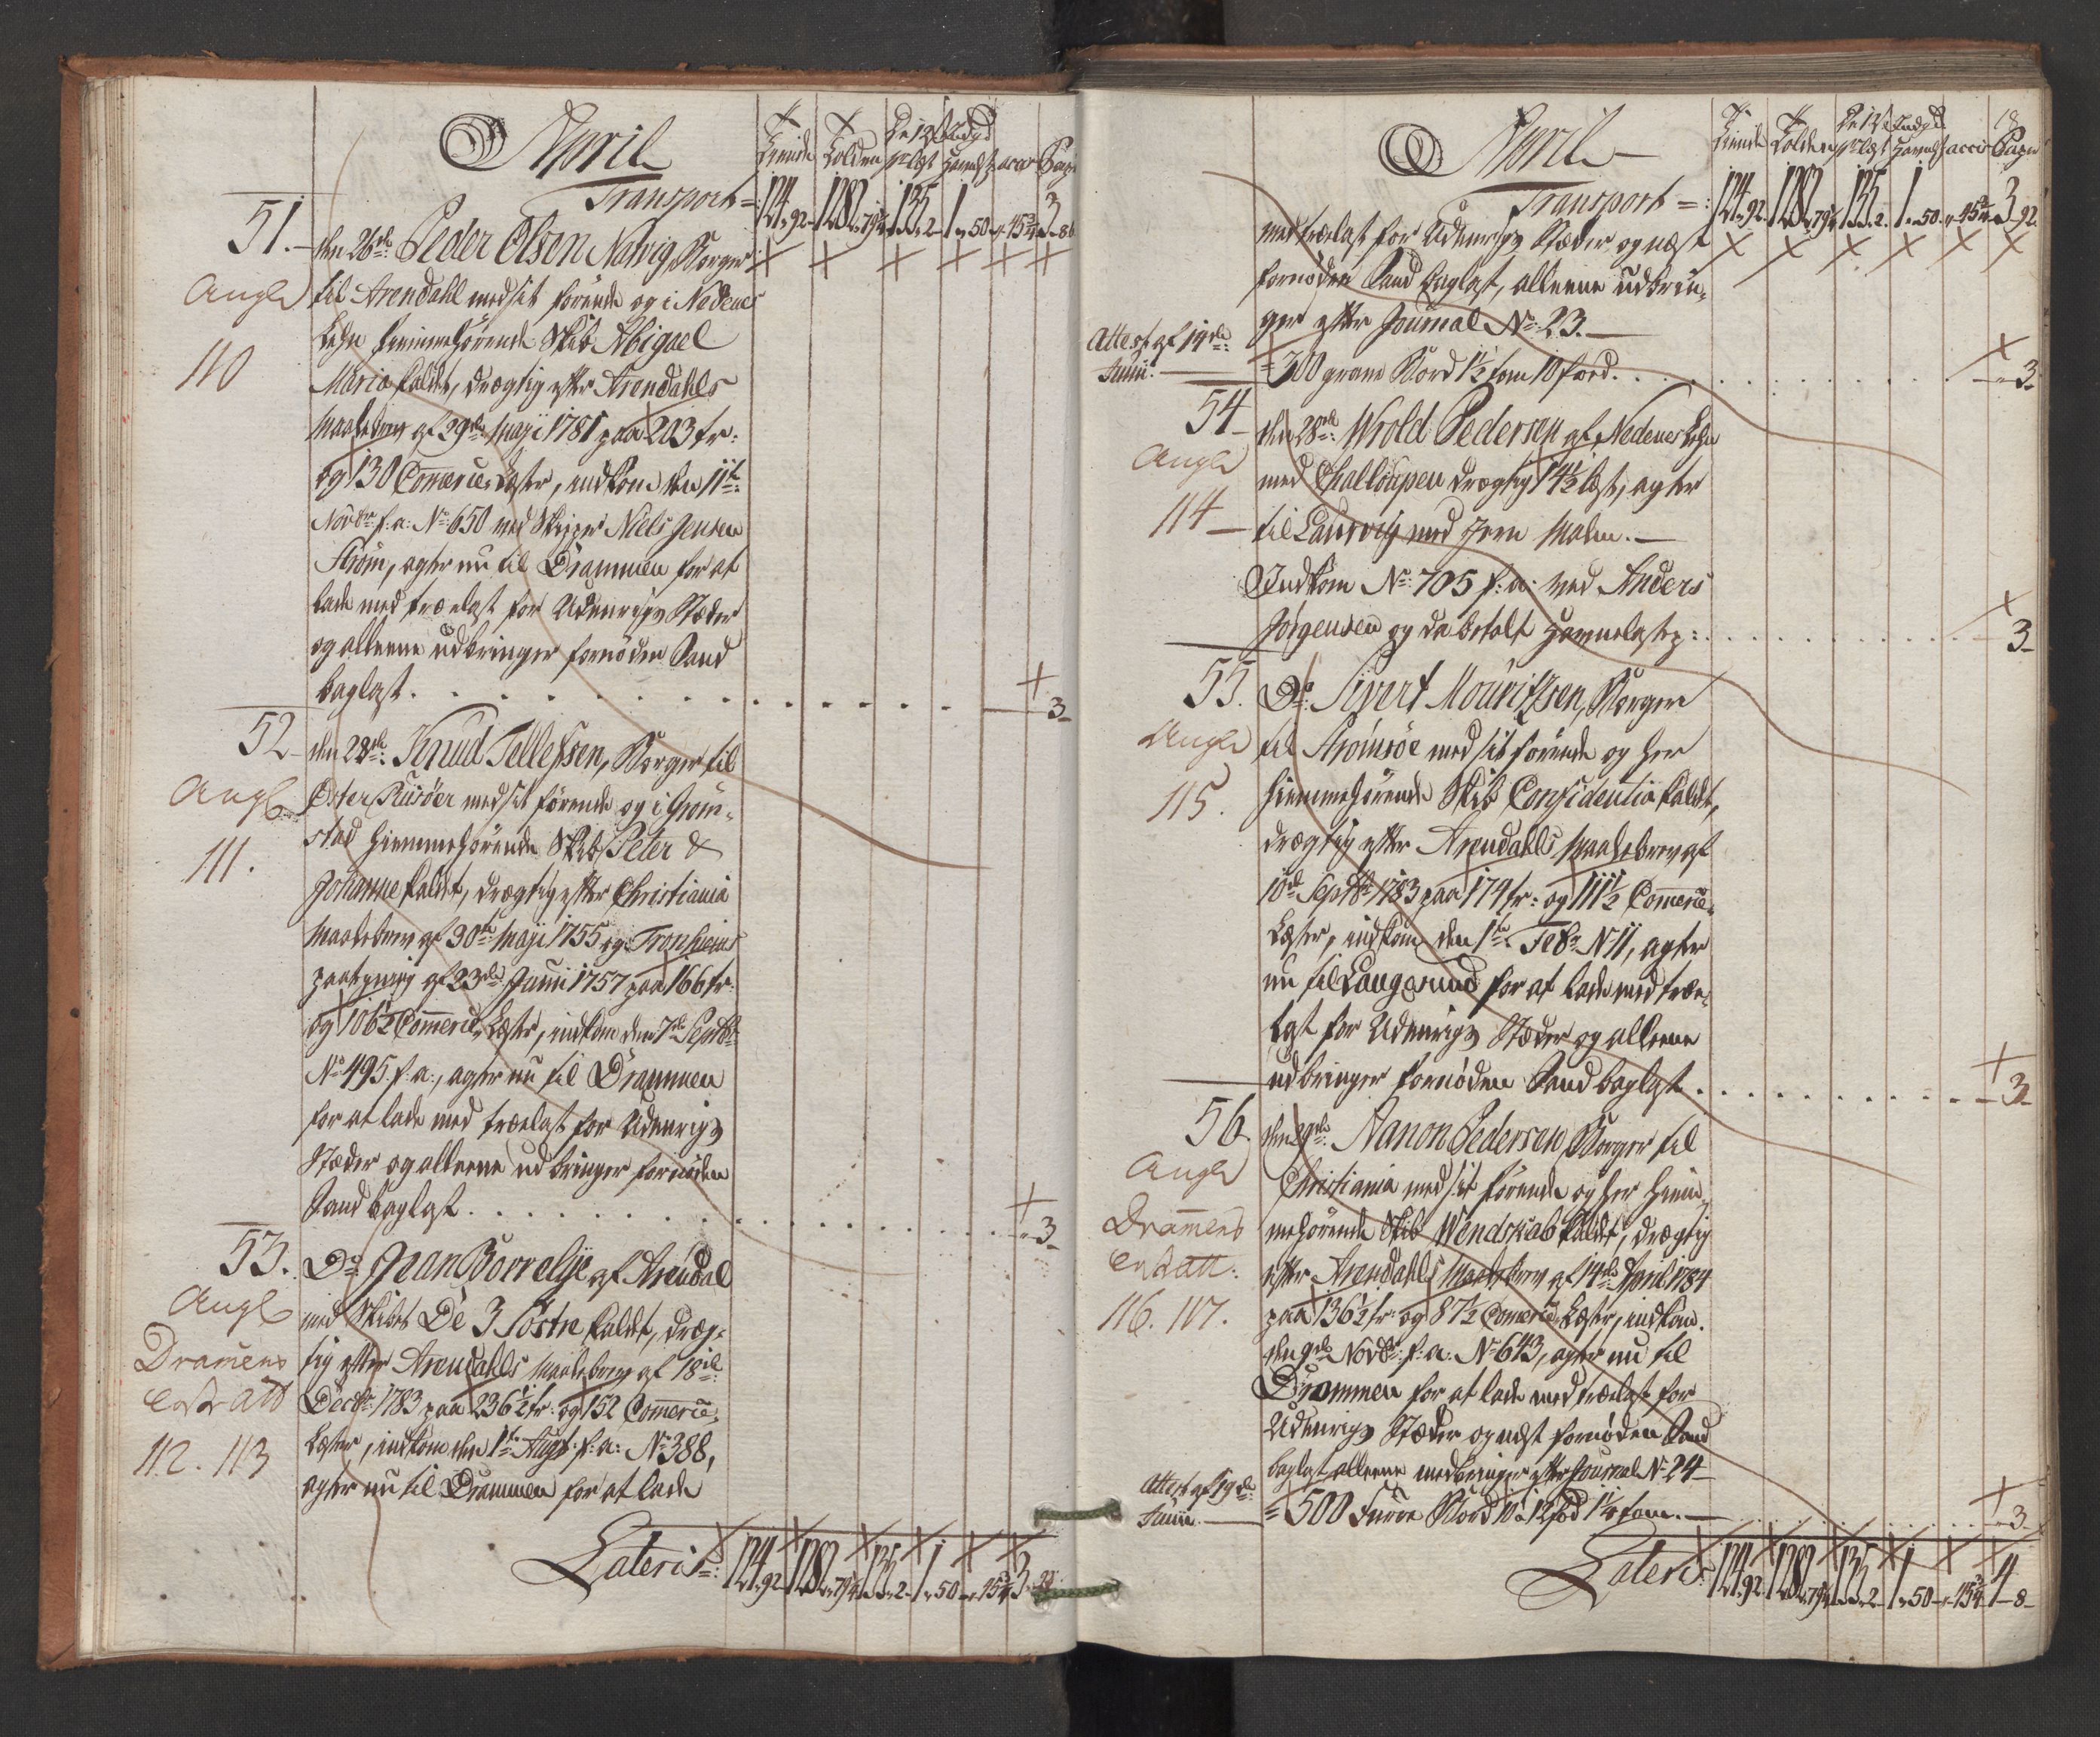 April
Transport =
124 „ 92 1282 „ 79¼ 135 „ 2 1 „ 50 „ 45¾ 3 „ 86
51. den 26de Peder Olsen Natvig, Borger
Angl til Arendahl med sit förende og i Nedenes
Lehn hiemmehörende Skib Abigael
110
Maria kaldet, drægtig efter Arendahls
Maalebrev af 29de Maji 1781 paa 203 tr:
og 130 Comerce Læster, indkom den 11te
Novbr f: a: No 650 med Skipper Niels Jensen
Ström, agter nu til Drammen for at
lade med trælast for Udenrigs Stæder
og alleene udbringer fornöden Sand
baglast. 3
52 den 28de Knud Tellefsen, Borger til
Angl Öster Riisöer med sit förende og i Grim-
stad hiemmehörende Skib Peter &
111.
Johanne kaldet, drægtig efter Christiania
Maalebrev af 30te Maji 1755 og Tronhiems
paategning af 23de Junii 1757 paa 166 tr:
og 106½ Comerce Læster, indkom den 7de Septbr
No 495 f: a:, agter nu til Drammen
for at lade med trælast for Udenrigs
Stæder og alleene udbringer fornöden
Sand baglast. 3
53. Do Jean Borrelye af Arendal
Angl
med Skibet De 3 Söstre kaldet, dræg-
Dramens
tig efter Arendahls Maalebrev af 18de
Decbr 1783 paa 236½ tr: og 152 Comerce
112. 113
Læster, indkom den 1te Augt: f: a: No 388,
agter nu til Drammen for at lade
Lateris 124 „ 92 1282 „ 79¼ 135 „ 2 1 „ 50 „ 45¾ 3 „ 92
18
April
Transport =
124 „ 92 1282 „ 79¼ 135 „ 2 1 „ 50 „ 45¾ 3 92
med trælast for Udenrigs Stæder og næst
fornöden Sand baglast, alleene udbrin-
ger efter Journal No 23.
Attest af 14de
Junii.
= 300 grane Bord 1½ tom 10 fod. 3
54 den 28de Wrold Pedersen af Nedenes Lehn
Angl
med Challoupen drægtig 14½ læst, agter
114 til Laurvig med Jern Malm.
Indkom No 705 f: a: med Anders
Jörgensen og da betalt Havnelastp: 3
55. Do Sivert Mouritzsen, Borger
Angl til Strömsöe med sit förende og her
115. hiemmehörende Skib Confidentia kaldt,
drægtig efter Arendahls Maalebrev af
10de Septbr 1783 paa 174 tr: og 111½ Comerce
Læster, indkom den 1te Febr N 11, agter
nu til Langesund for at lade med træe-
last for Udenrigs Stæder og alleene
udbringer fornöden Sand baglast. 3
56. den 29de Nanon Pedersen, Borger til
Angl
Christiania med sit förende og her hiem-
Dramens
mehörende Skib Wendskab kaldt, drægtig
efter Arendahls Maalebrev af 14de April 1784
116. 117.
paa 136½ tr: og 87½ Comerce Læster, indkom
den 9de Novbr: f: a: No 643, agter nu til
Drammen for at lade med trælast for
Udenrigs Stæder og næst fornöden Sand
baglast alleene medbringer efter Journal No 24
Attest af 19de
Junii.
= 500 Furre Bord 10 a 12 fod 1¼ tom. 3
Lateris 124 „ 92 1282 „ 79¼ 135 „ 2 1 „ 50 „ 45¾ 4 „ 8